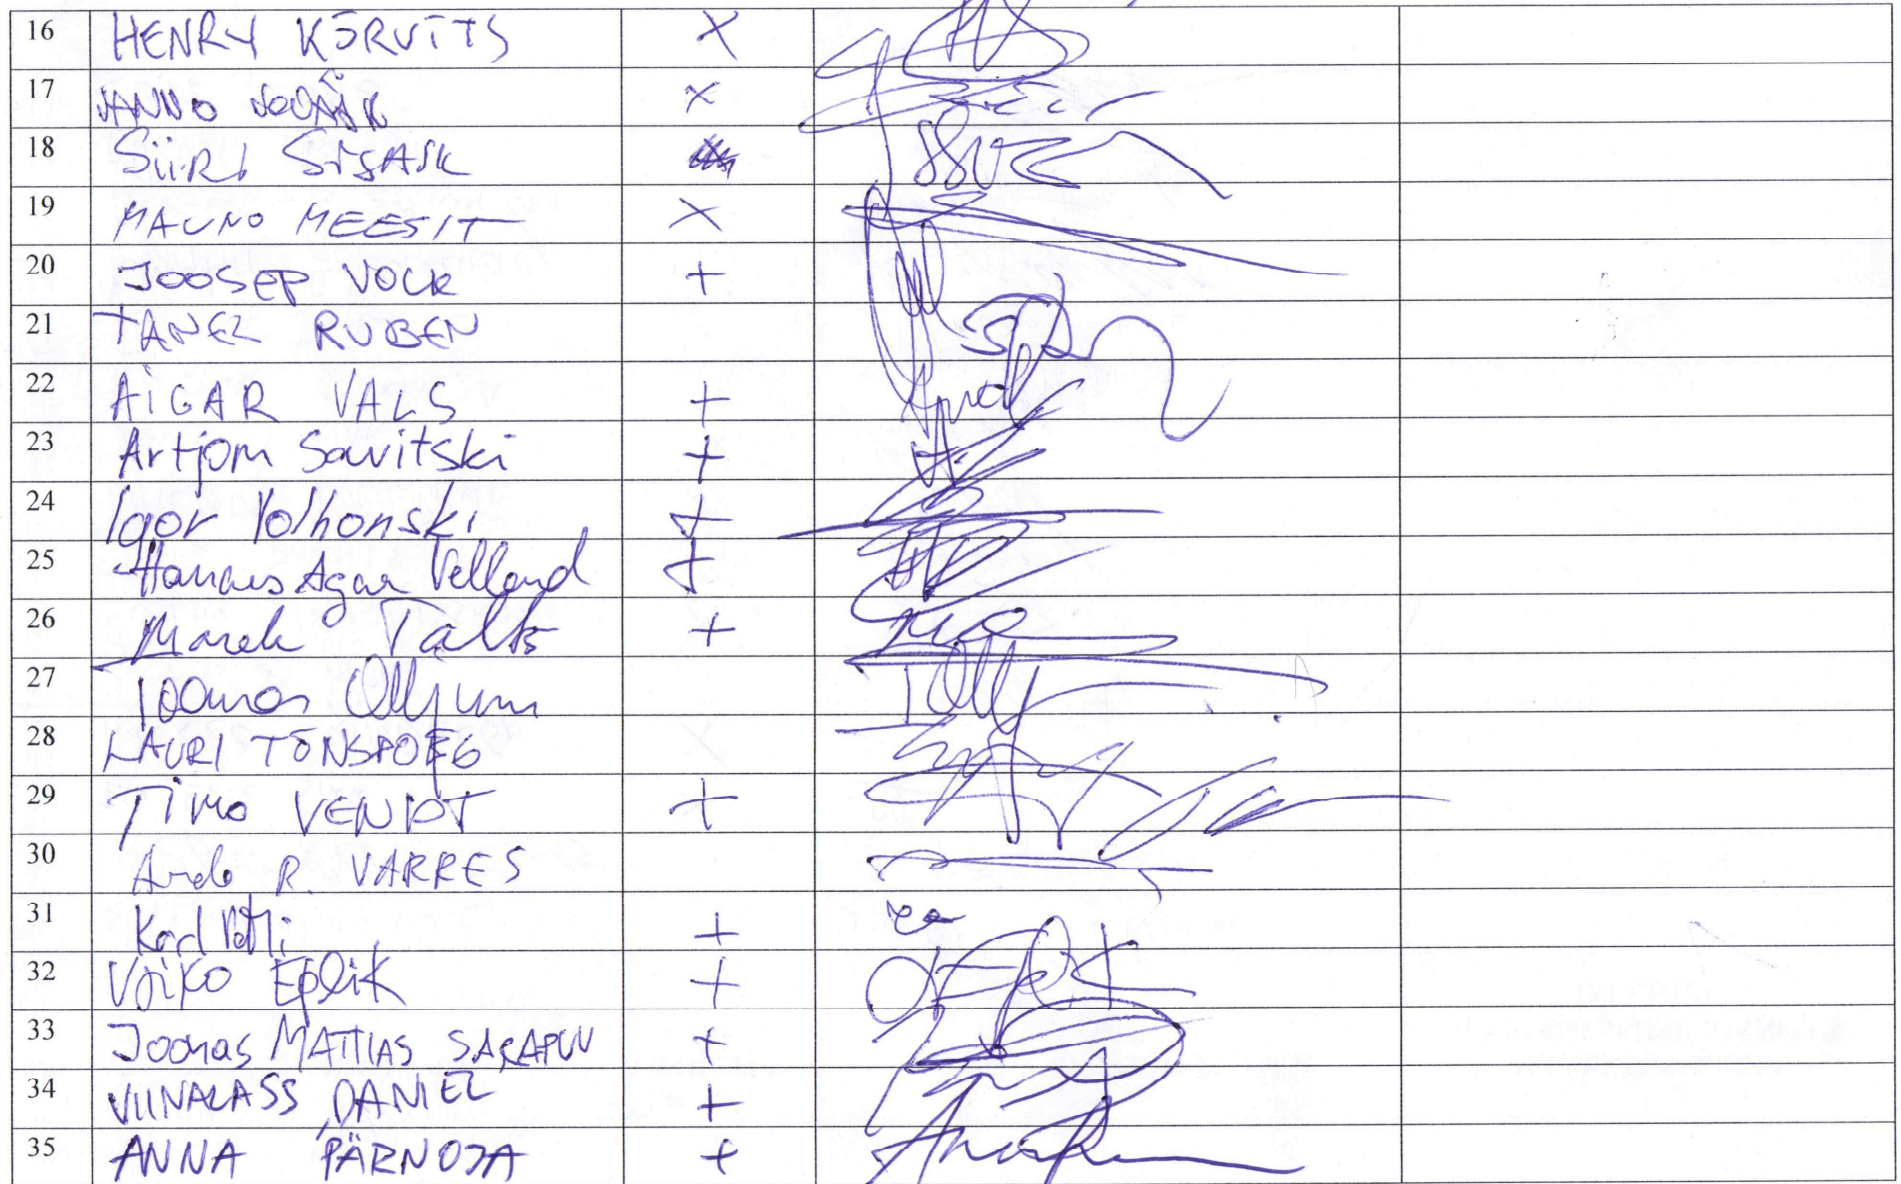 16 HENRY KÕRVITS X
17 X
18 SiiRi SiSASK
19 MAUNO MEESIT X
20 JOOSEP VOLK +
21 TANEL RUBEN
22 AiGAR VALS +
23 Artjom Savitski +
24 Igor Volhonski +
25 Hannus Agar Velland +
26 Marek Talts +
27 Toomas Olljum
28 LAURI TÕNSPOEG
29 TiMO VENDT +
30 R. VARRES
31 Karl +
32 Vaiko Eplik +
33 Joonas MATTIAS SARAPUU +
34 VIINALASS, DANIEL +
35 ANNA PÄRNOJA +